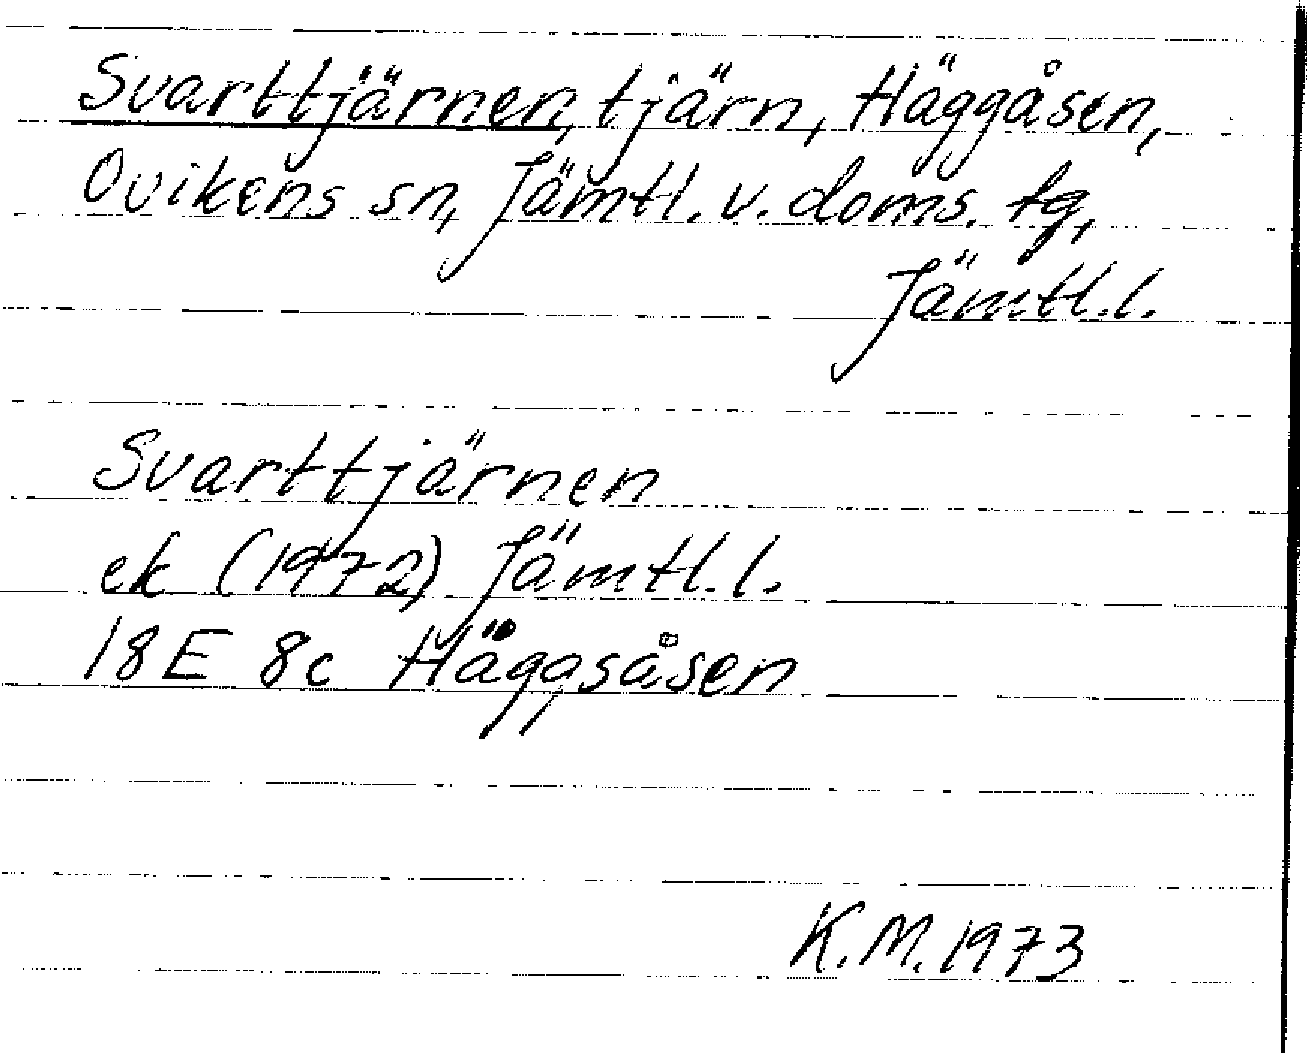 Svarttjärnen, tjärn, Häggåsen,
Ovikens sn, Jämtl. v. doms. tg,
Jämtl.l.
Svarttjärnen
ek (1972) Jämtl.l.
18E 8c Häggsåsen
K.M.1973